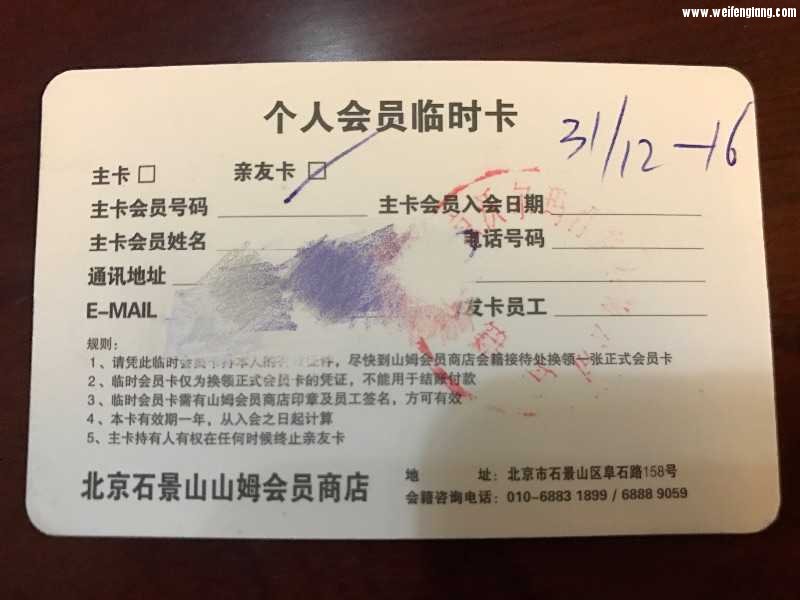 www.weifengtang.com
个人会员临时卡
31/12-16
主卡 亲友卡
主卡会员号码 主卡会员入会日期
主卡会员姓名 电话号码
通讯地址
E-MAIL 发卡员工
规则:
1、请凭此临时会员卡持本人的有效证件，尽快到山姆会员商店会籍接待处换领一张正式会员卡
2、临时会员卡仅为换领正式会员卡的凭证，不能用于结账付款
3、临时会员卡需有山姆会员商店印章及员工签名，方可有效
4、本卡有效期一年，从入会之日起计算
5、主卡持有人有权在任何时候终止亲友卡
北京石景山山姆会员商店
地 址: 北京市石景山区阜石路158号
会籍咨询电话: 010-6883 1899 / 6888 9059